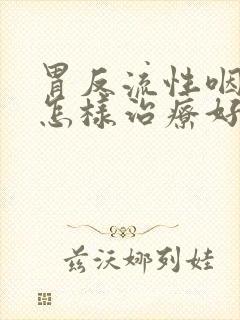 胃反流性咽
怎样治疗好
兹沃娜列娃